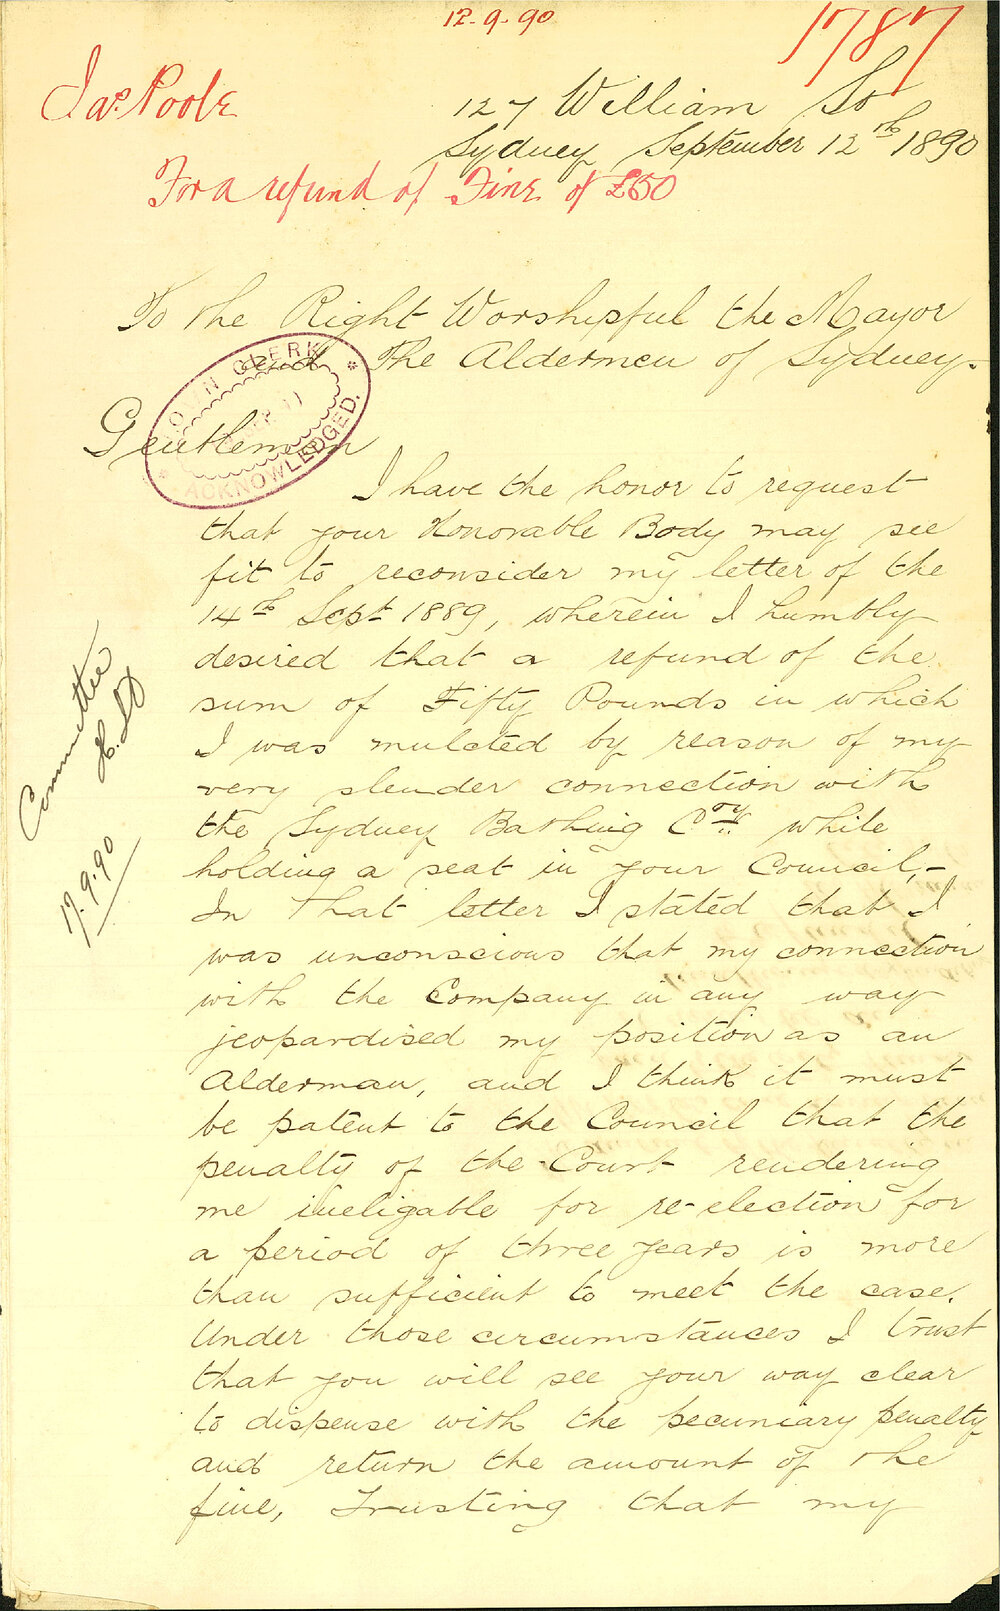 12.9.90
1787
Jas Poole
127 William St
Sydney September 12th 1890
For a refund of Fine of £50
To The Right Worshipful the Mayor
and The Aldermen of Sydney.
TOWN CLERK
ACKNOWLEDGED.
Gentlemen
I have the honor to request
that your Honorable Body may see
fit to reconsider my letter of the
14th Sept 1889, wherein I humbly
desired that a refund of the
sum of Fifty Pounds in which
I was mulcted by reason of my
very slender connection with
the Sydney Bathing Coy while
holding a seat in your Council,-
In that letter I stated that I
was unconscious that my connection
with the Company in any way
jeopardised my position as an
Alderman, and I think it must
be patent to the Council that the
penalty of the Court rendering
me ineligable for re-election for
a period of three years is more
than sufficient to meet the case.
Under those circumstances I trust
that you will see your way clear
to dispense with the pecuniary penalty
and return the amount of the
fine, Trusting that my
Committee
17.9.90